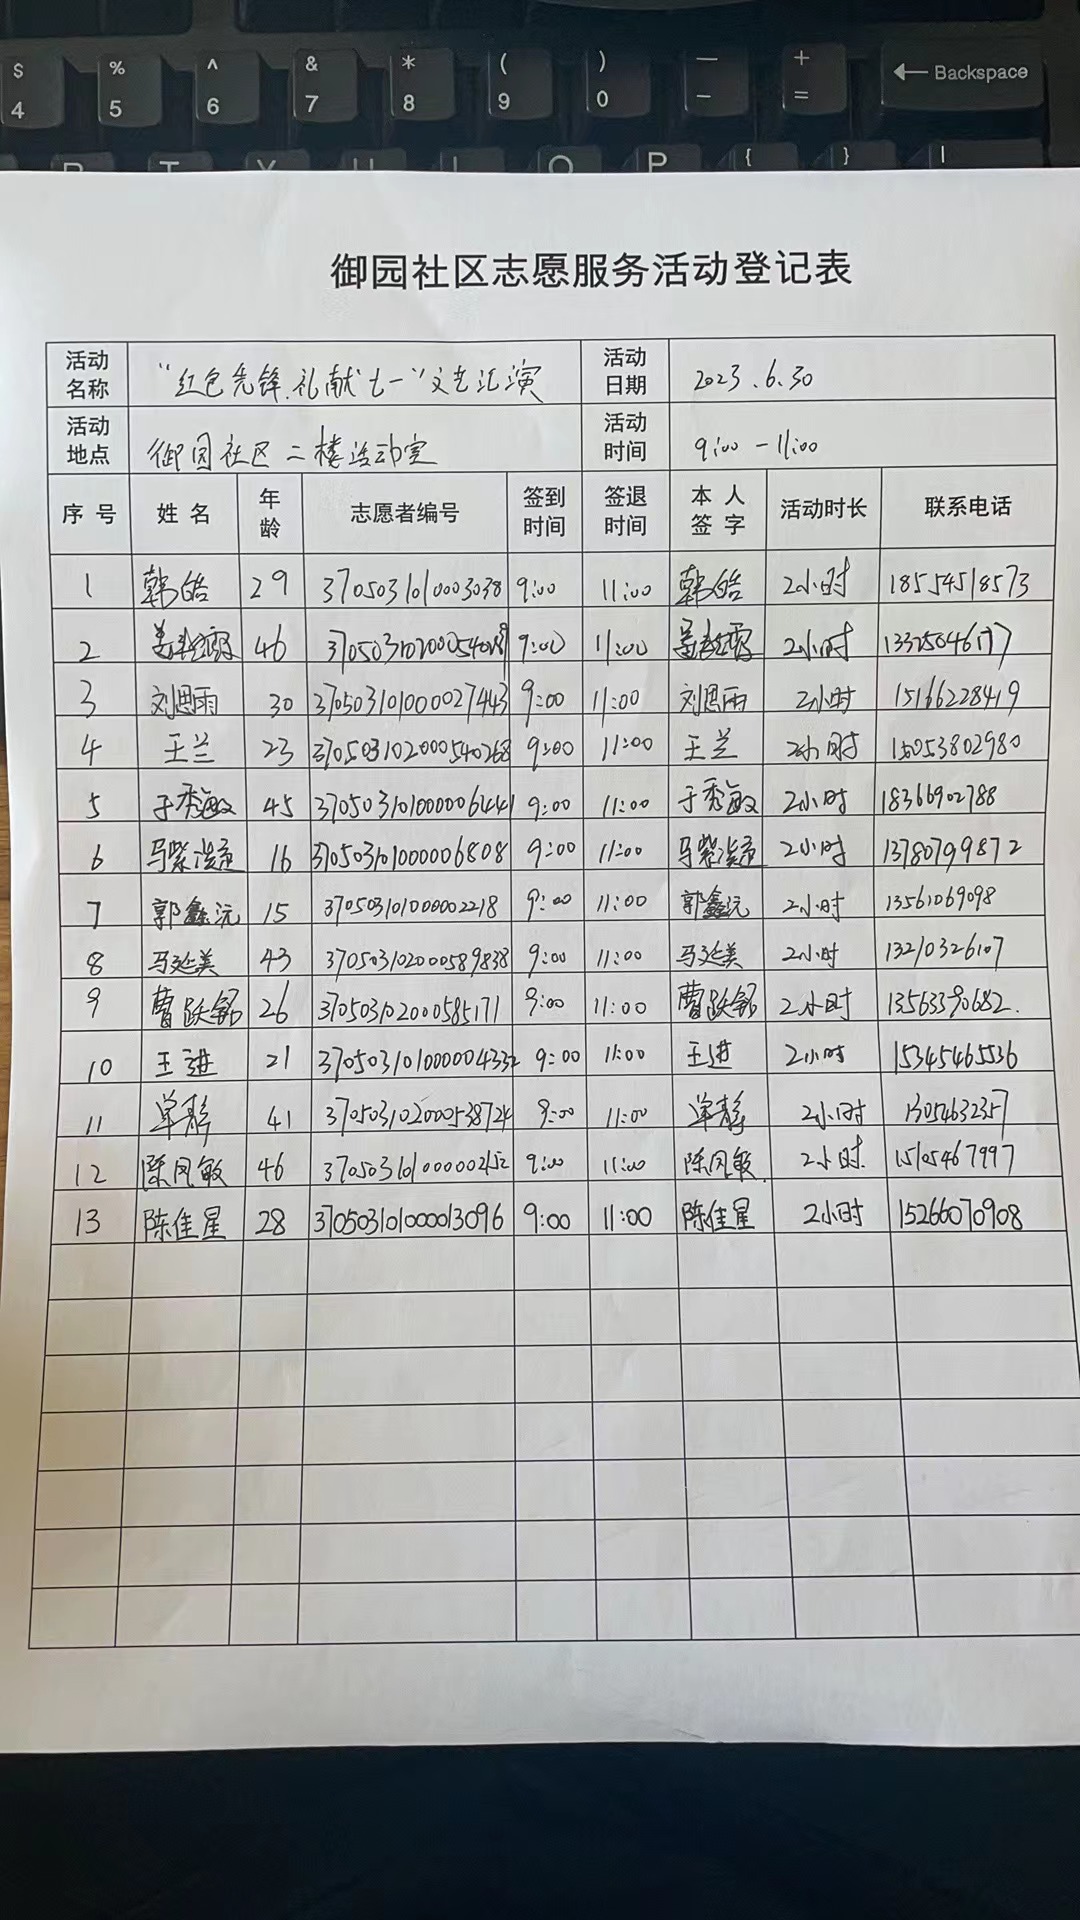 $ % ^ & * ( ) — +
4 5 6 7 8 9 0 - = Backspace
R T Y U I O P { } |
御园社区志愿服务活动登记表
活动名称 “红色先锋.礼献‘七一’”文艺汇演 活动日期 2023.6.30
活动地点 御园社区二楼活动室 活动时间 9:00-11:00
序号 姓名 年龄 志愿者编号 签到时间 签退时间 本人签字 活动时长 联系电话
1 韩皓 29 3705031010003038 9:00 11:00 韩皓 2小时 18554518573
2 46 9:00 11:00 2小时
3 刘思雨 30 370503101000027443 9:00 11:00 刘思雨 2小时 15166228419
4 王兰 23 370503102000540268 9:00 11:00 王兰 2小时 15053802980
5 于秀敏 45 370503101000006441 9:00 11:00 于秀敏 2小时 18366902788
6 16 370503101000006808 9:00 11:00 2小时 13780799872
7 郭鑫沅 15 370503101000002218 9:00 11:00 郭鑫沅 2小时 13561069098
8 马延美 43 370503102000589838 9:00 11:00 马延美 2小时 13210326107
9 曹跃铭 26 370503102000585171 9:00 11:00 曹跃铭 2小时 13563390682.
10 王进 21 370503101000004332 9:00 11:00 王进 2小时 15345465536
11 单静 41 370503102000538724 9:00 11:00 单静 2小时 13054632357
12 陈凤敏 46 370503101000002152 9:00 11:00 陈凤敏. 2小时. 15105467997
13 陈佳星 28 370503101000013096 9:00 11:00 陈佳星 2小时 15266070908